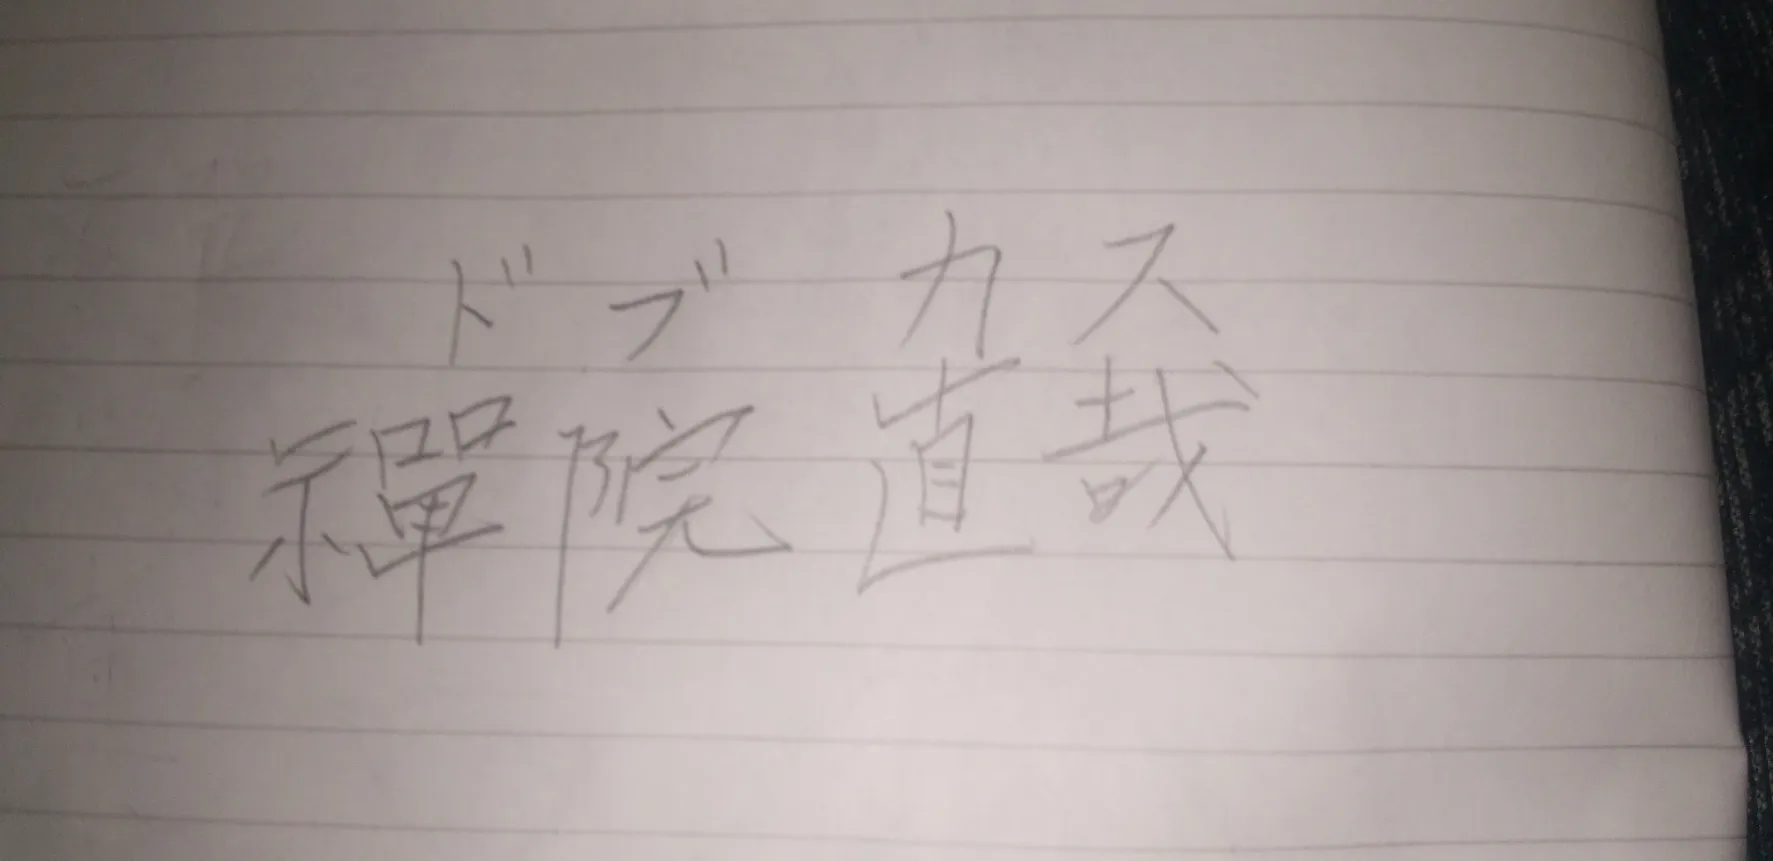 ドブ カス
禪院直哉